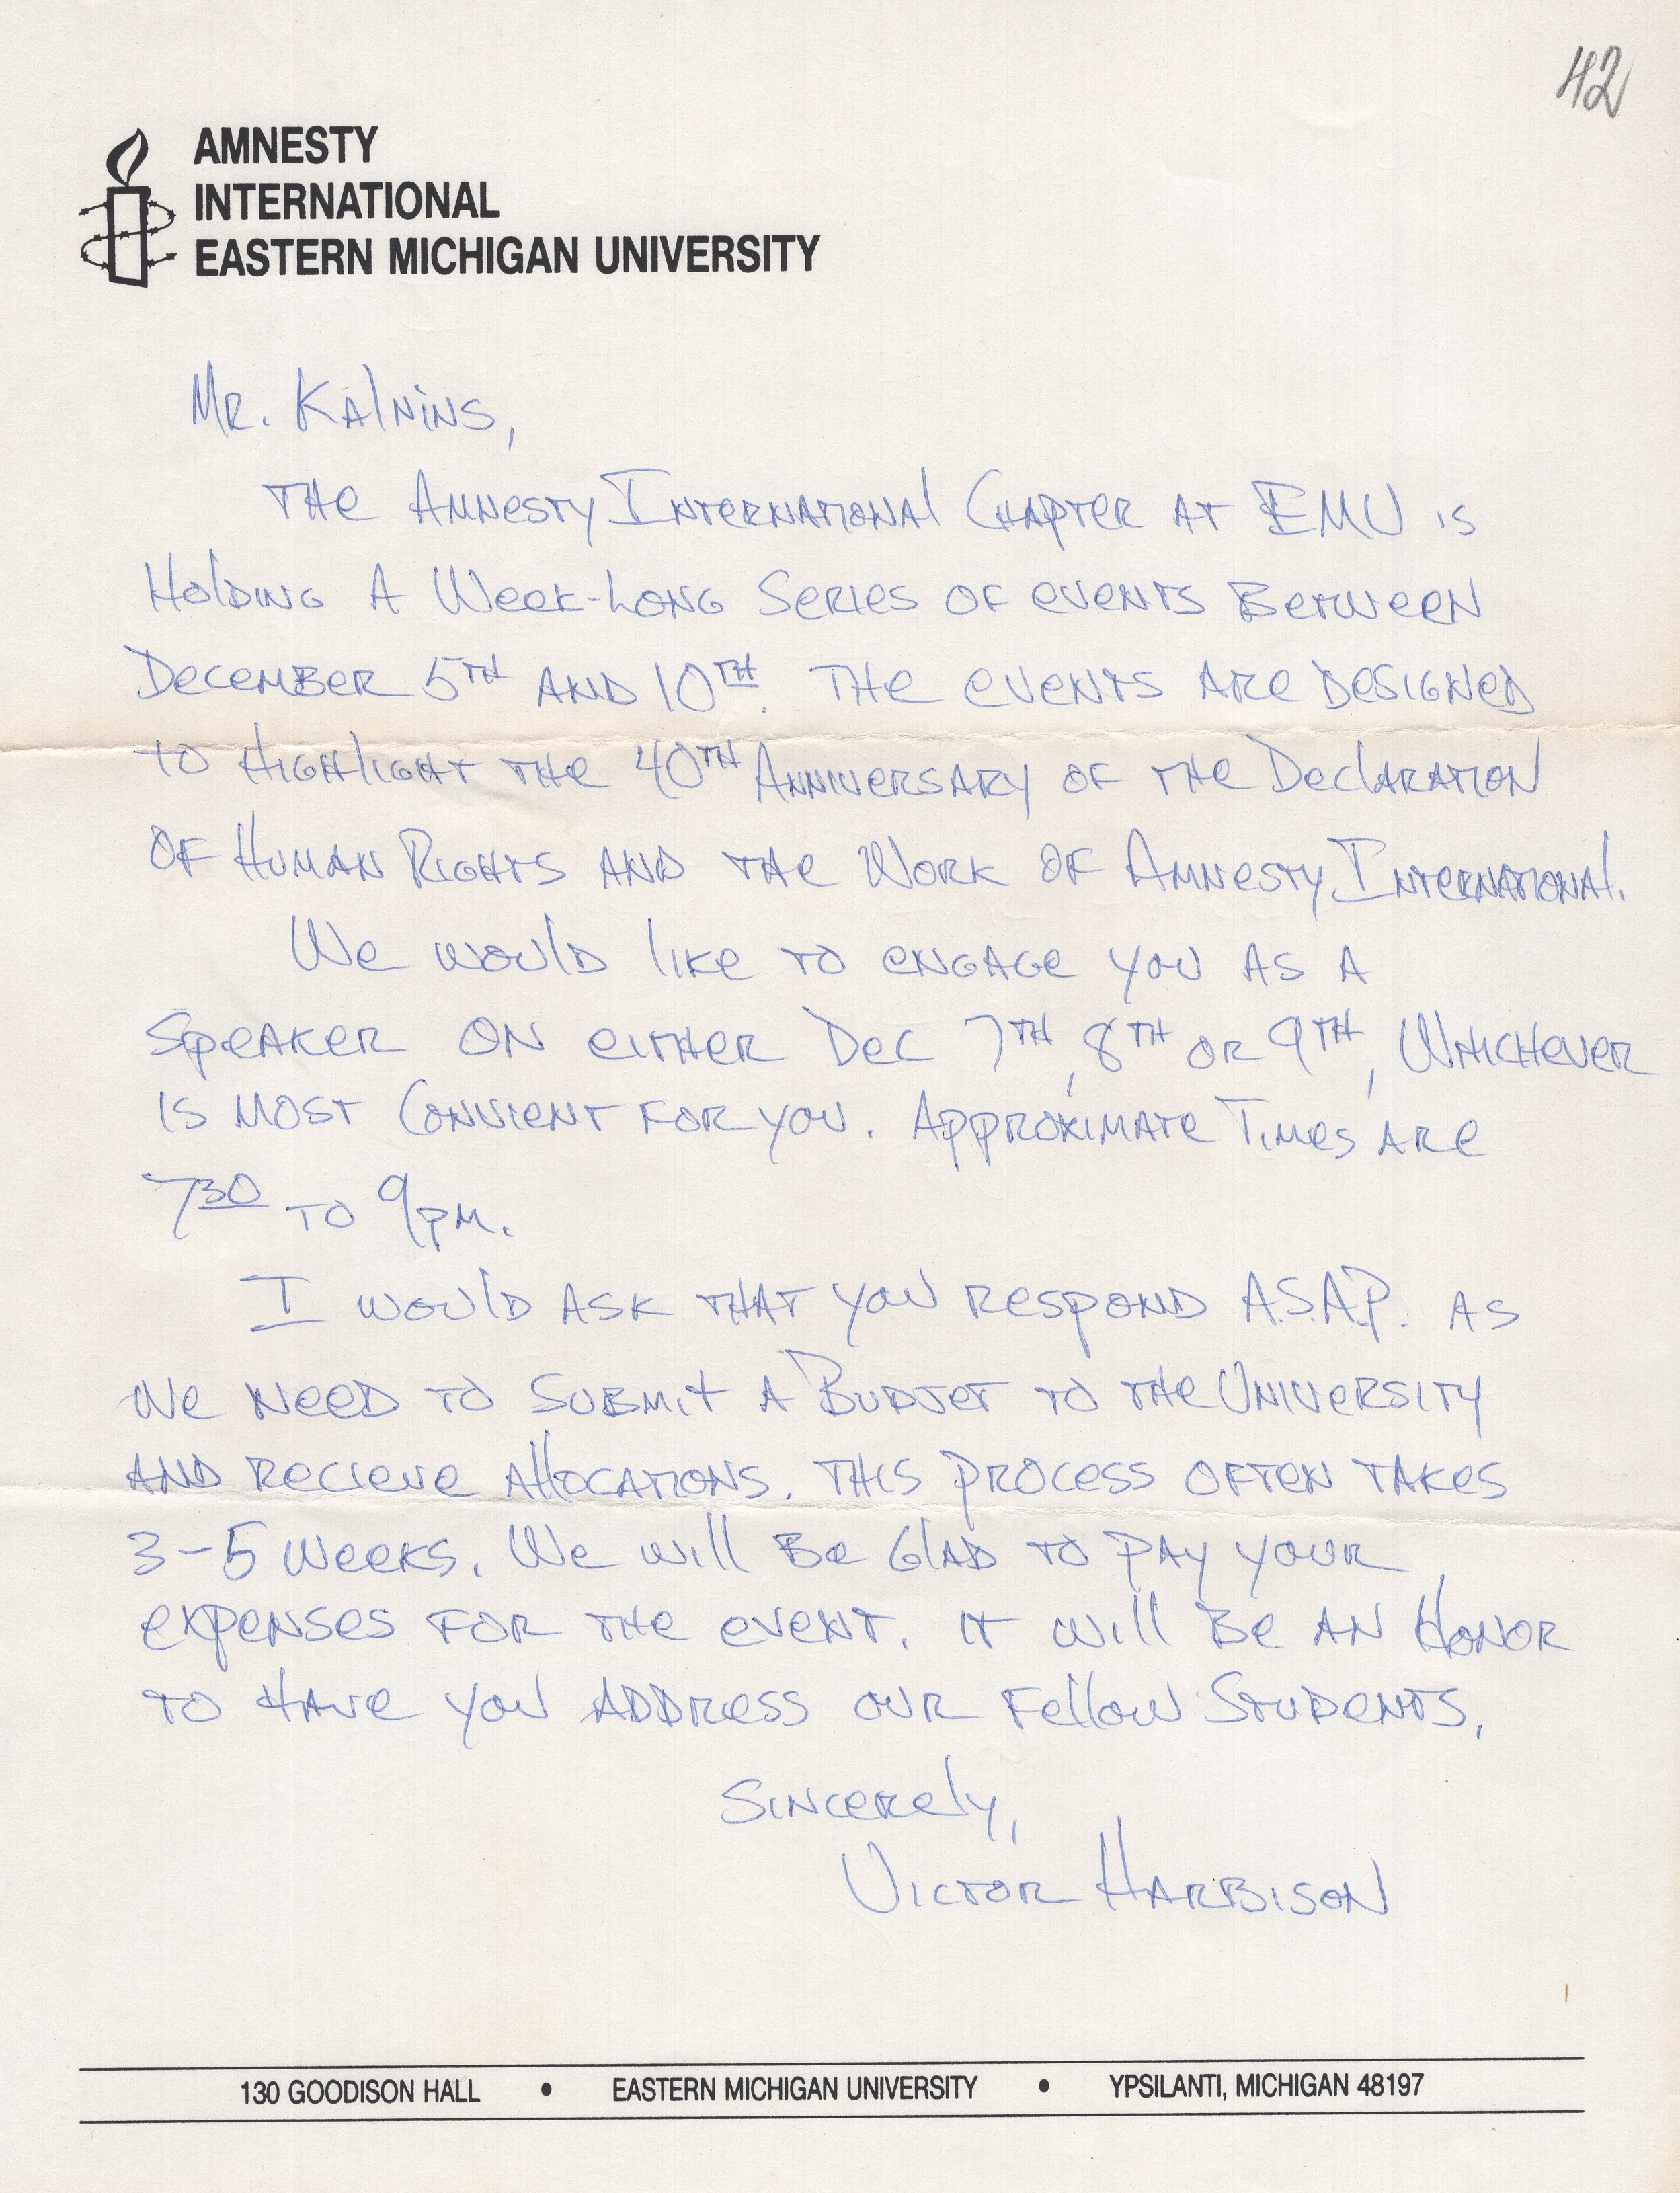 42
AMNESTY
INTERNATIONAL
EASTERN MICHIGAN UNIVERSITY
Mr. Kalnins,
The Amnesty International Chapter at EMU is
Holding a Week-Long Series of events Between
December 5th and 10th. The events are designed
to Highlight the 40th Anniversary of the Declaration
of Human Rights and the Work of Amnesty International.
We would like to engage you as a
Speaker on either Dec 7th, 8th or 9th, Whichever
is most Convient for you. Approximate Times are
7 30 to 9pm.
I would ask that you respond A.S.A.P. as
we need to submit a Budjet to the University
and recieve allocations. This process often takes
3-5 weeks. We will Be Glad to pay your
expenses for the event. It will Be an Honor
to have you address our Fellow Students.
Sincerely,
Victor Harbison
130 GOODISON HALL • EASTERN MICHIGAN UNIVERSITY • YPSILANTI, MICHIGAN 48197